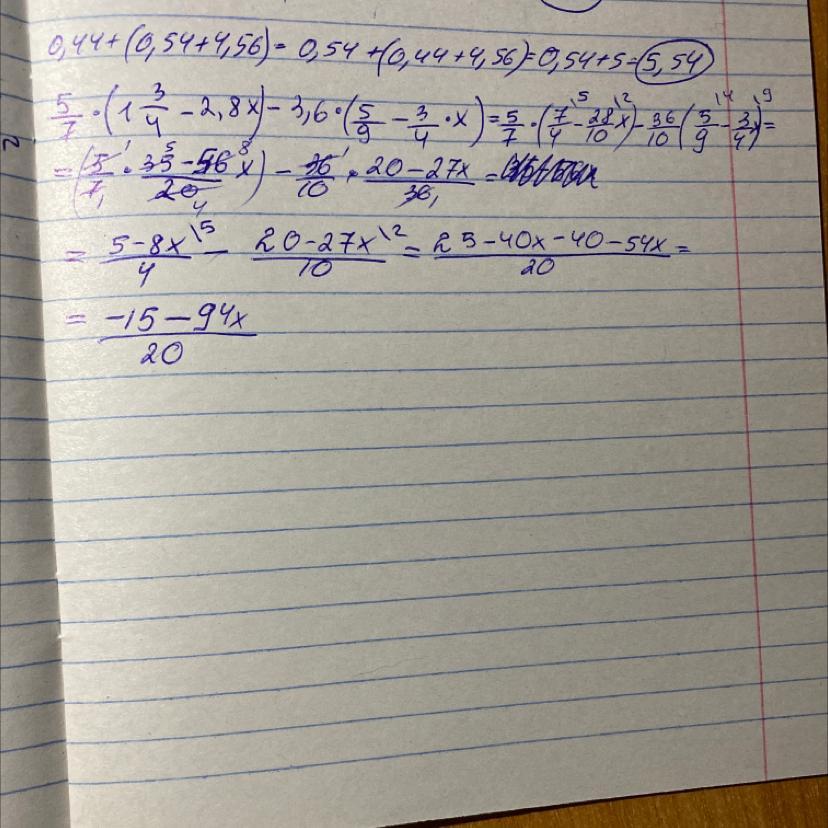 0,44+(0,54+4,56)= 0,54+(0,44+4,56)=0,54+5=5,54
5/7·(1 3/4-2,8x)-3,6·(5/9-3/4·x)=5/7·(7/4\5-28/10x\2)-36/10(5/9\4-3/4x\9)=
=(5/7·(35-56x)/20)-36/10·(20-27x)/36=
=(5-8x)/4\5-(20-27x)/10\2=(25-40x-40-54x)/20=
=(-15-94x)/20